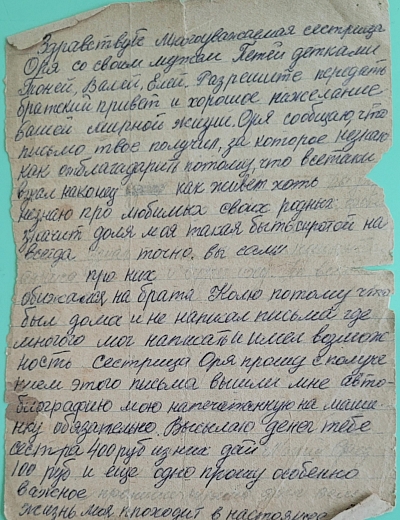 Здравствуйте Многоуважаемая сестрица
Оря со своим мужом Петей детками
Тоней, Валей, Елей. Разрешите передать
братский привет и хорошое пожелание
вашой мирной жизни. Оря сообщаю, что
письмо твоё получил, за которое незнаю
как отблагадарить потому, что всетаки
узнал наконец как живет хоть
незнаю про любимых своих родных
значит доля моя такая быть сиротой на
всегда точно. вы сами
про них
обижался на брата Колю потому что
был дома и не написал письма где
многого мог написать и имел возмож
ность сестрица Оря прошу с получе
нием этого письма вышли мне авто-
биографию мою напечатанную на маши-
нку обязательно. Высылаю денег тебе
сестра 400 руб из них дай
100 руб и еще одно прошу особенно
важное
жизнь моя проходит в настояще